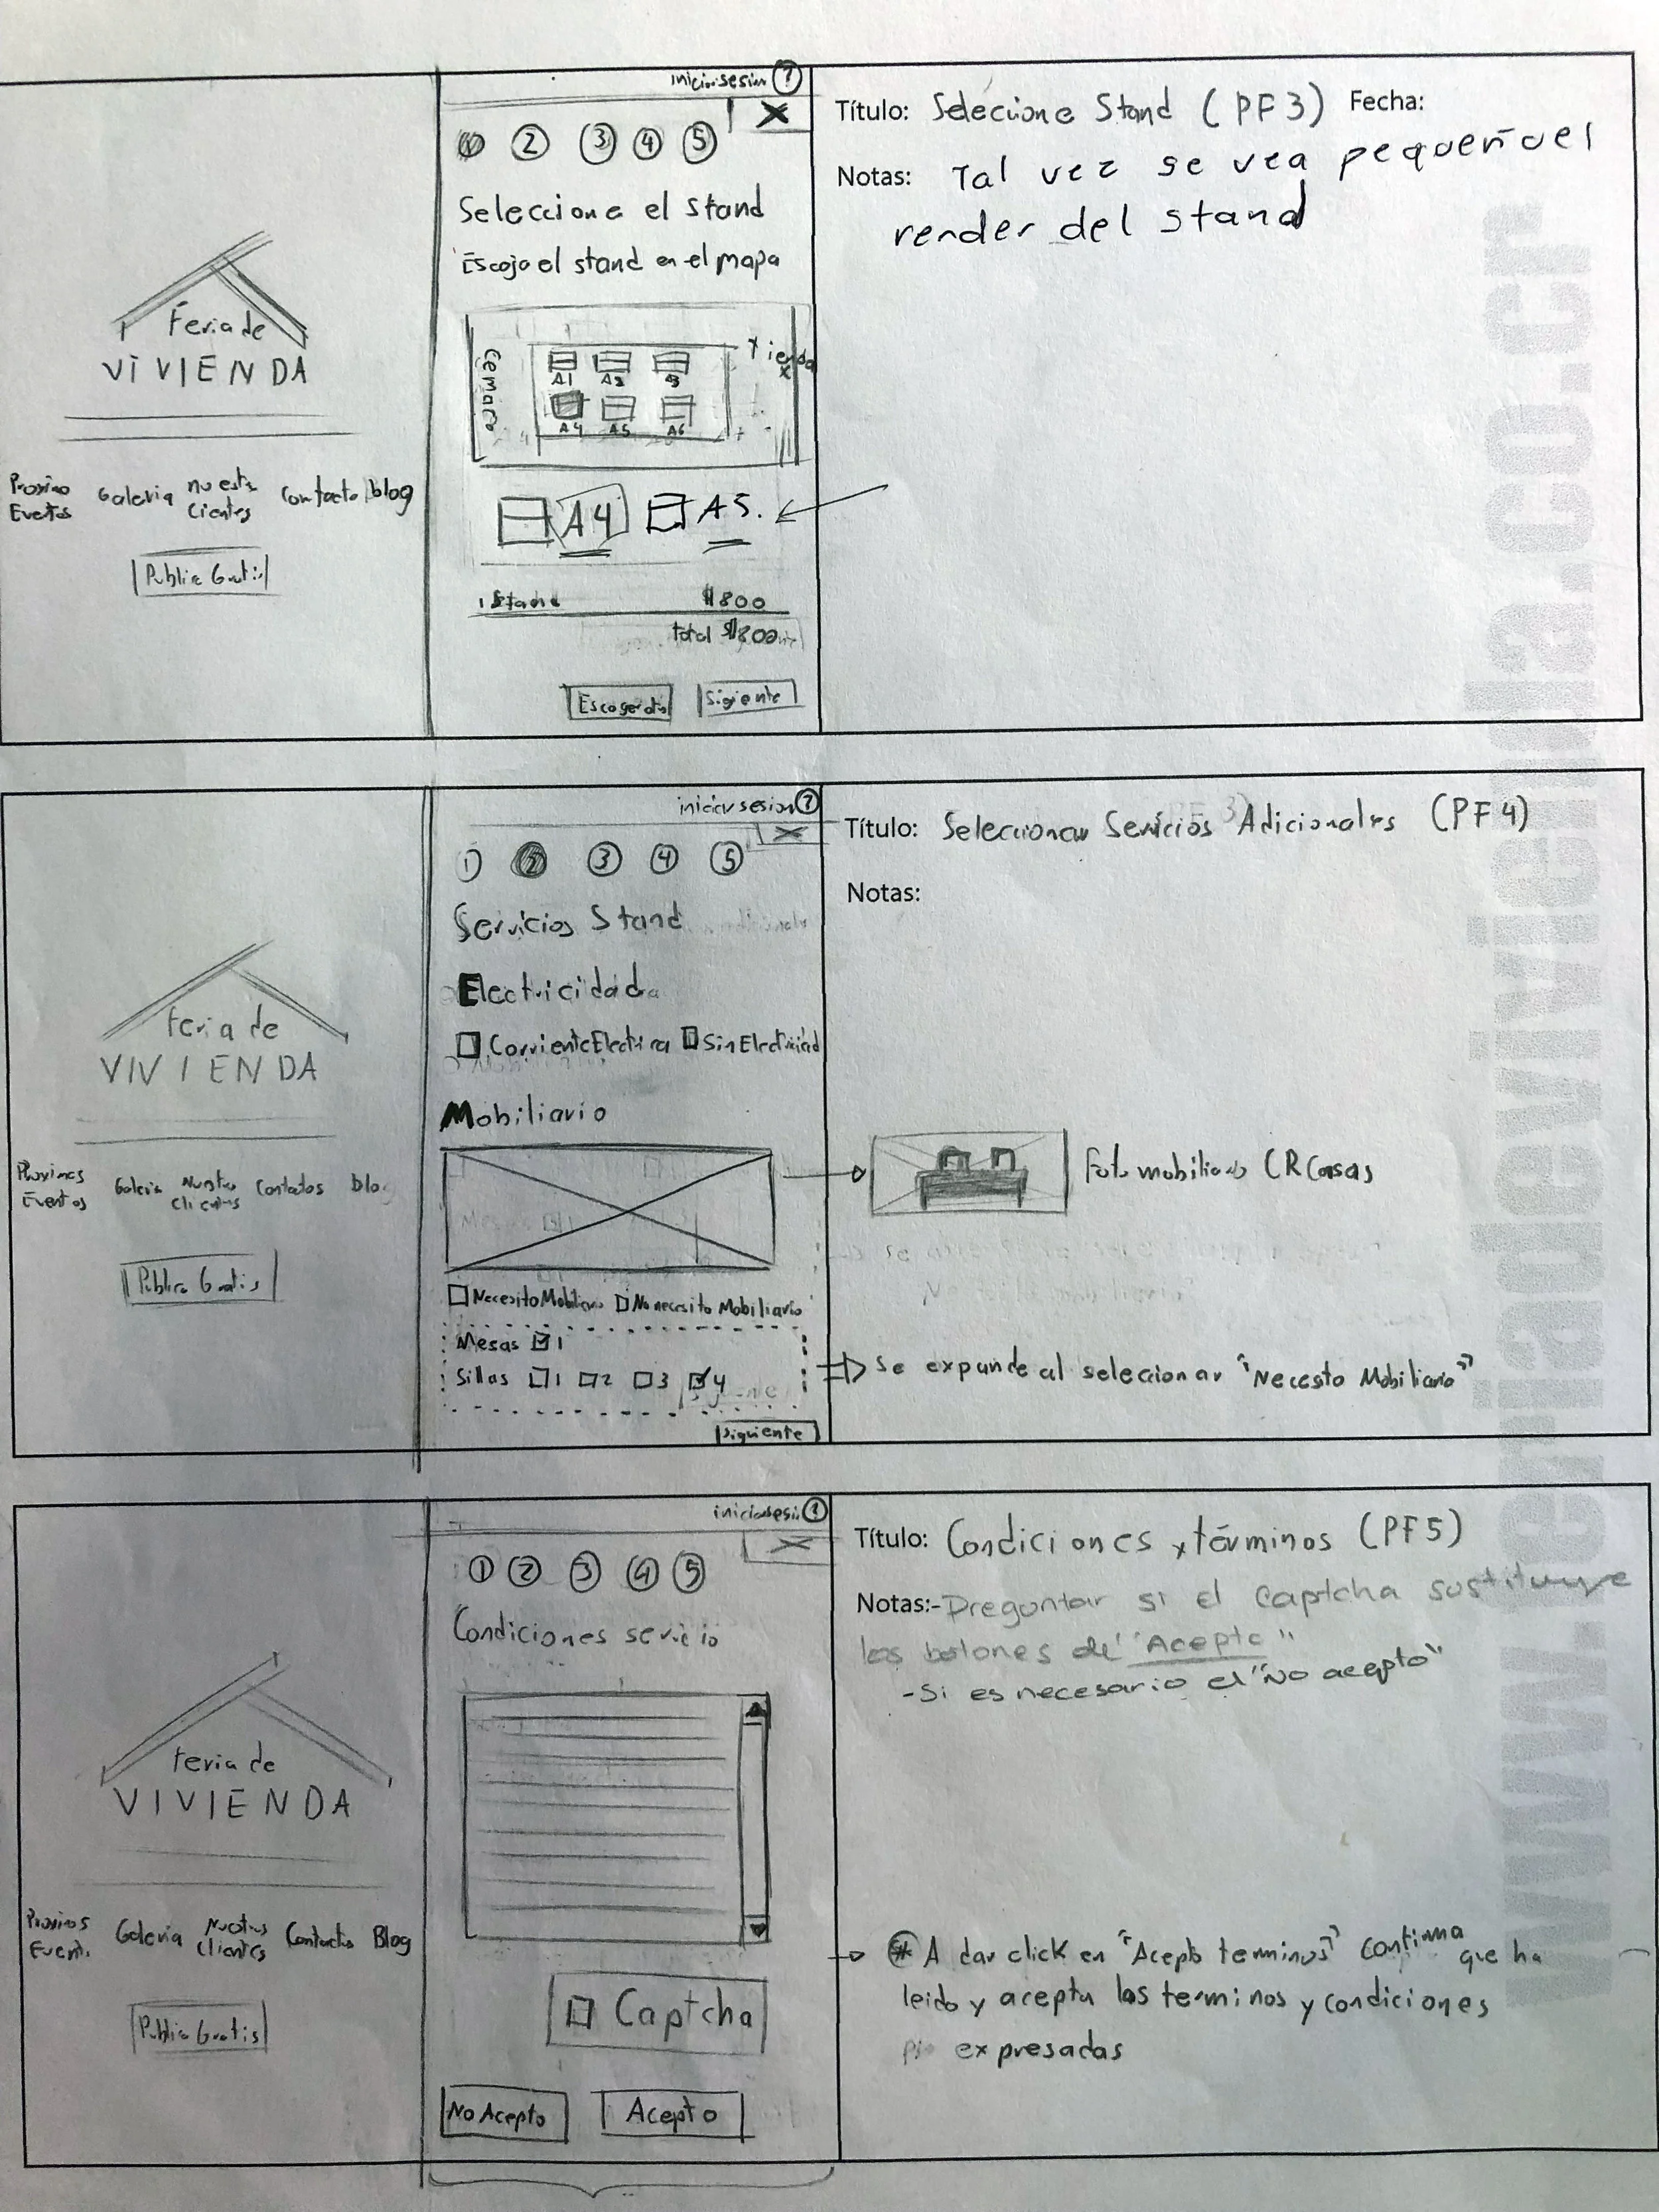 Feria de
VIVIENDA
Proximo
Eventos
Galeria
nuestr
Clientes
Contacto
blog
Publica Gratis
inicio sesion ?
X
1 2 3 4 5
Seleccione el stand
Escoja el stand en el mapa
Cemaco
A1 A2 A3
A4 A5 A6
A4 A5.
1 Stand $800
total $800
Escoger otro
Siguiente
Título: Selecione Stand (PF3) Fecha:
Notas: Tal vez se vea pequeño el
render del stand
Feria de
VIVIENDA
Proximos
Eventos
Galeria
Nuestro
Clientes
Contactos
blog
Publica Gratis
iniciar sesion ?
X
1 2 3 4 5
Servicios Stand
Electricidad
Corriente Electrica Sin Electricidad
Mobiliario
Necesito Mobiliario No necesito Mobiliario
Mesas 1
Sillas 1 2 3 4
Siguiente
Título: Seleccionar Servicios Adicionales (PF4)
Notas:
Foto mobiliario CRCasas
Se expande al seleccionar "Necesto Mobiliario"
Feria de
VIVIENDA
Proximos
Event.
Galeria
Nuestros
Clientes
Contacto
Blog
Publica Gratis
inicio sesi. ?
X
1 2 3 4 5
Condiciones servicio
Captcha
No Acepto Acepto
Título: Condiciones y términos (PF5)
Notas:-Preguntar si el captcha sustituye
los botones de "Acepto"
-Si es necesario el "No acepto"
* A dar click en "Acepto terminos" confirma que ha
leido y acepta los terminos y condiciones
expresadas
www.feriadevivienda.co.cr